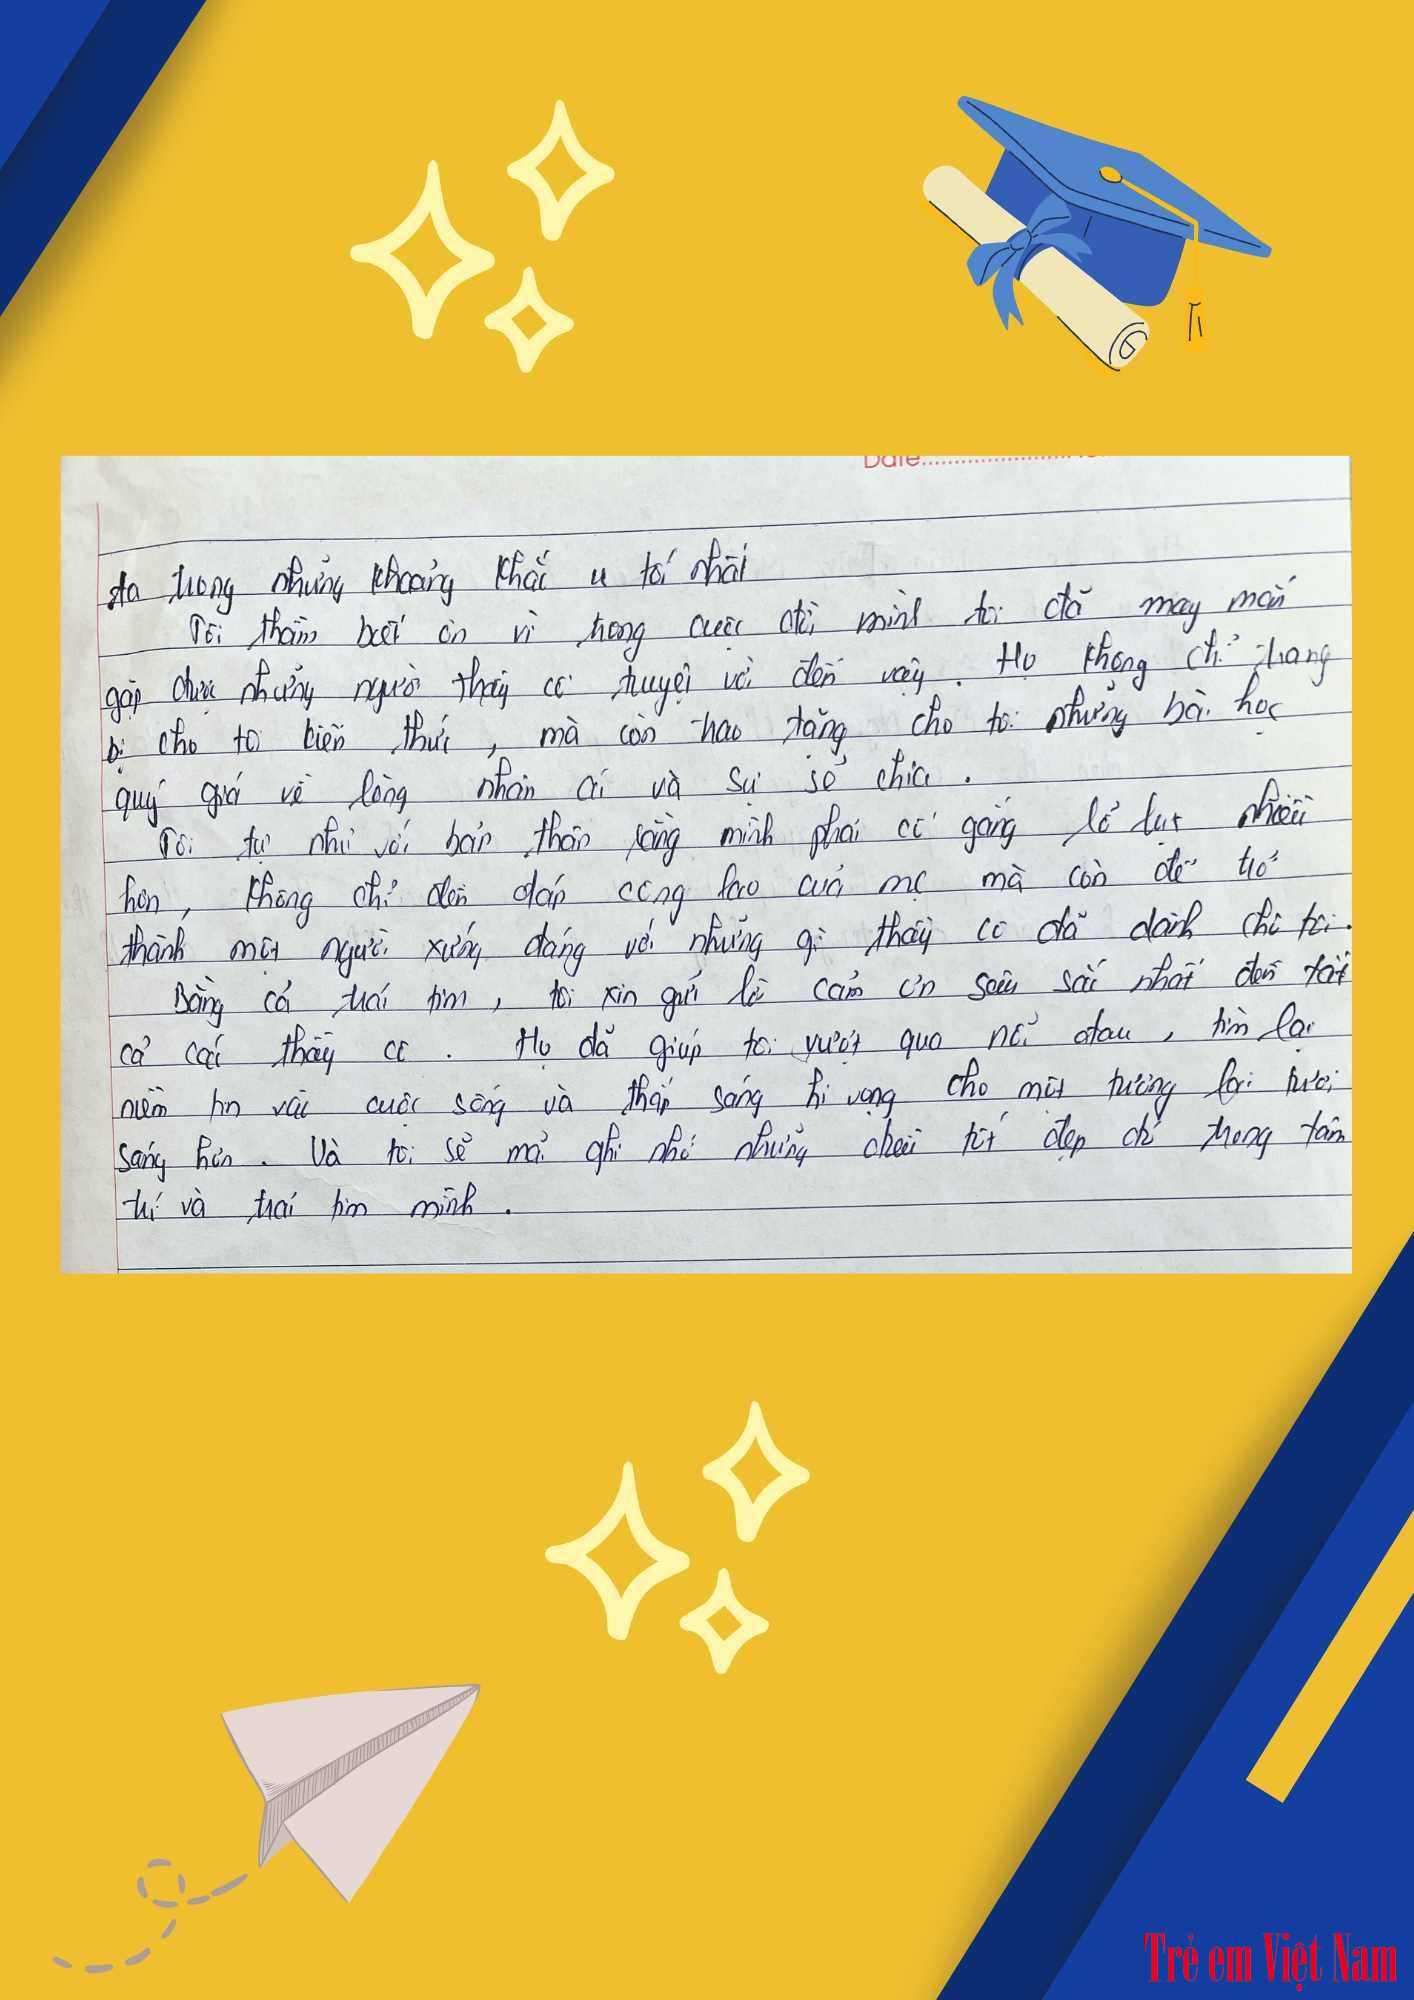 Date
ta trong những khoảng khắc u tối nhất
Tôi thầm biết ơn vì trong cuộc đời mình tôi đã may mắn
gặp được những người thầy cô tuyệt vời đến vậy. Họ không chỉ trang
bị cho tôi kiến thức, mà còn trao tặng cho tôi những bài học
quý giá về lòng nhân ái và sự sẻ chia.
Tôi tự nhủ với bản thân rằng mình phải cố gắng lổ lực nhiều
hơn, không chỉ đền đáp công lao của mẹ mà còn để trở
thành một người xứng đáng với những gì thầy cô đã dành cho tôi.
Bằng cả trái tim, tôi xin gửi lời cảm ơn sâu sắc nhất đến tất
cả các thầy cô. Họ đã giúp tôi vượt qua nổi đau, tìm lại
niềm tin vào cuộc sống và thắp sáng hi vọng cho một tương lai tươi
sáng hơn. Và tôi sẽ mãi ghi nhớ những điều tốt đẹp đó trong tâm
trí và trái tim mình.
Trẻ em Việt Nam